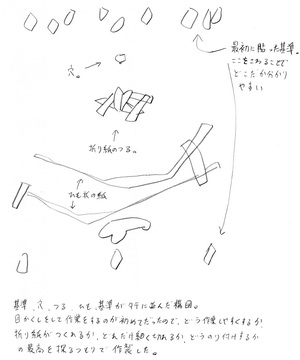 最初に貼った基準。
ここをさわることで
どこか分かり
やすい
穴。
折り紙のつる。
ひも状の紙
基準、穴、つる、ひも、基準が
目かくしをして作業をするのが初めてだったので、どう作業しやすくするか、
折り紙がつくれるか、どれだけ細くちぎれるか、どうのり付けするか
の最高を探るつもりで作製した。